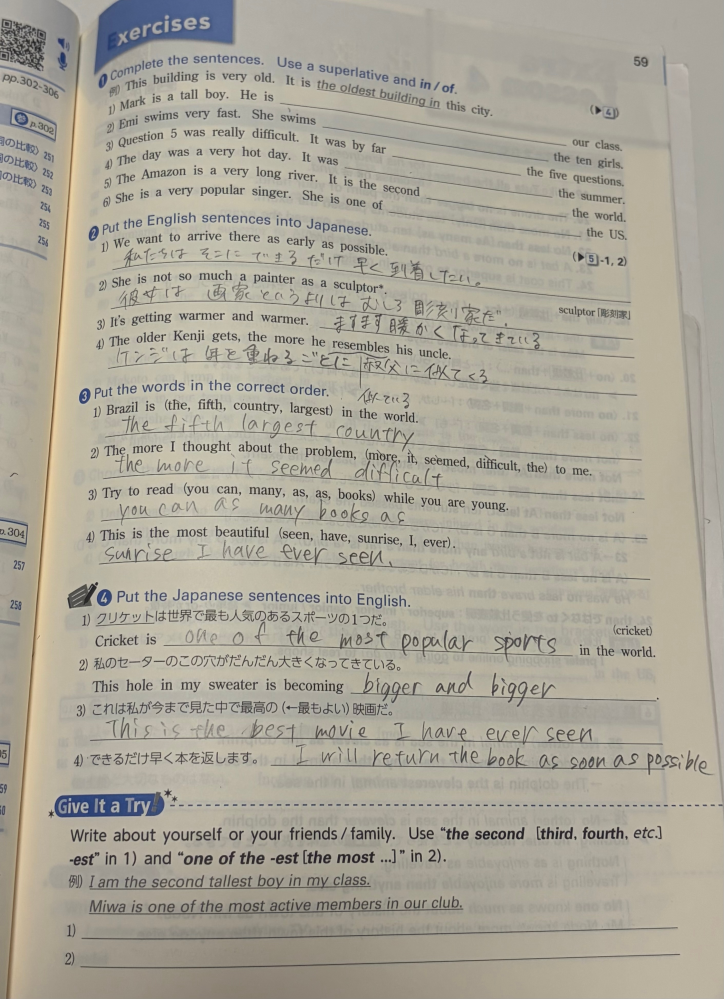 pp.302-306
p.302
Exercises
59
❶ Complete the sentences. Use a superlative and in / of.
(▶4)
例) This building is very old. It is the oldest building in this city.
1) Mark is a tall boy. He is our class.
2) Emi swims very fast. She swims the ten girls.
3) Question 5 was really difficult. It was by far the five questions.
4) The day was a very hot day. It was the summer.
5) The Amazon is a very long river. It is the second the world.
6) She is a very popular singer. She is one of the US.
の比較〉251
の比較〉252
の比較〉253
254
255
256
❷ Put the English sentences into Japanese.
(▶5-1, 2)
1) We want to arrive there as early as possible.
私たちは そこに できるだけ 早く 到着したい。
2) She is not so much a painter as a sculptor*.
sculptor「彫刻家」
彼女は 画家というよりは むしろ 彫刻家だ。
3) It's getting warmer and warmer. ますます暖かくなってきている
4) The older Kenji gets, the more he resembles his uncle.
ケンジは 年を重ねるごとに 叔父に似てくる
似ている
❸ Put the words in the correct order.
1) Brazil is (the, fifth, country, largest) in the world.
the fifth largest country
2) The more I thought about the problem, (more, it, seemed, difficult, the) to me.
the more it seemed difficalt
3) Try to read (you can, many, as, as, books) while you are young.
you can as many books as
4) This is the most beautiful (seen, have, sunrise, I, ever).
sunrise I have ever seen.
p.304
257
258
❹ Put the Japanese sentences into English.
1) クリケットは世界で最も人気のあるスポーツの1つだ。
(cricket)
Cricket is one of the most popular sports in the world.
2) 私のセーターのこの穴がだんだん大きくなってきている。
This hole in my sweater is becoming bigger and bigger.
3) これは私が今まで見た中で最高の (←最もよい) 映画だ。
This is the best movie I have ever seen
4) できるだけ早く本を返します。 I will return the book as soon as possible
Give It a Try!
Write about yourself or your friends / family. Use “the second [third, fourth, etc.]
-est” in 1) and “one of the -est [the most ...]” in 2).
例) I am the second tallest boy in my class.
Miwa is one of the most active members in our club.
1)
2)